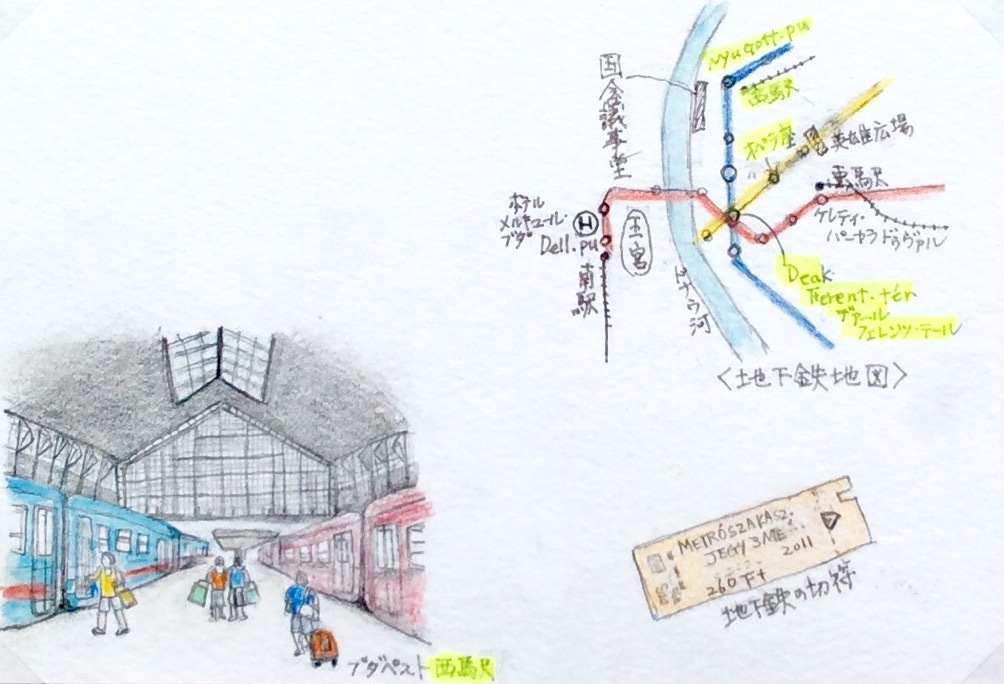 Nyugati.pu
西駅
国会議事堂
オペラ座
英雄広場
東駅
ケレティ・
パーヤラドゥヴァル
ホテル
メルキュール・
ブダ
H
Dell.pu
王宮
南駅
ドナウ河
Deak
Ferent.tér
デアール
フェレンツ・テール
〈地下鉄地図〉
METRÓSZAKASZ.
JEGY 3 ME
2011
260 Ft
地下鉄の切符
ブダペスト西駅